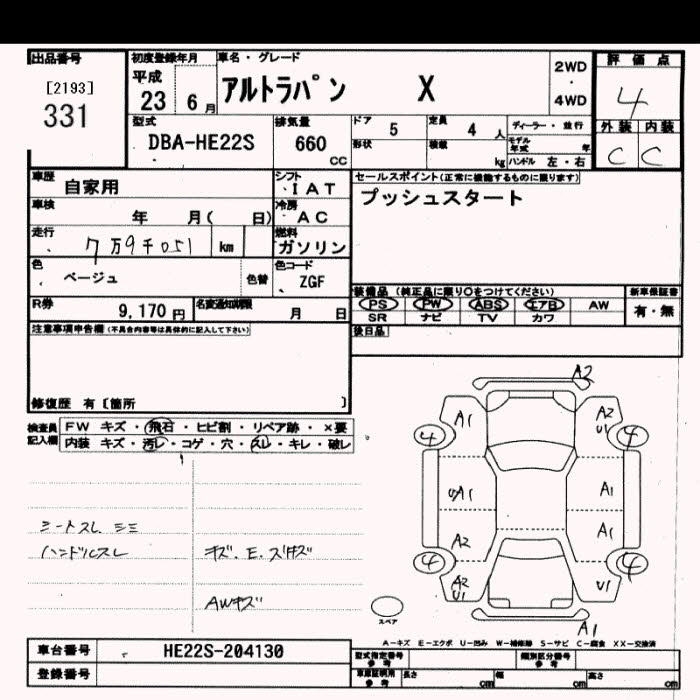 出品番号
[2193]
331
初度登録年月
平成
23 6 月
車名・グレード
アルトラパン X
2WD
・
4WD
評価点
4
外装 内装
C C
型式
DBA-HE22S
排気量
660
CC
ドア 5
定員 4 人
ディーラー・並行
形状
積載 kg
モデル年式 年
ハンドル 左・右
車歴 自家用
シフト IAT
車検 年 月( 日)
冷房 AC
走行 7万9千051 km
燃料 ガソリン
色 ベージュ 色替
色コード ZGF
セールスポイント(正常に機能するものに限ります)
プッシュスタート
装備品 (純正品に限り○をつけてください)
PS PW ABS エアB AW
SR ナビ TV カワ
新車保証書
有・無
後日品
R券 9,170 円
名変通知期限 月 日
注意事項申告欄(不具合内容等は具体的に記入して下さい)
修復歴 有〔箇所 〕
検査員記入欄
FW キズ・飛石・ヒビ割・リペア跡・×要
内装 キズ・汚レ・コゲ・穴・スレ・キレ・破レ
シートスレ シミ
ハンドルスレ
キズ.E.ズキズ
AWキズ
A2
A1
A2
U1
4
4
A1
A1
A1
A2
4
4
A2
U1
U1
A1
スペア
A-キズ E-エクボ U-凹み W-補修跡 S-サビ C-腐食 XX-交換済
車台番号 HE22S-204130
登録番号
型式指定番号 参考
類別区分番号 参考
車庫証明用 参考
長さ cm
幅 cm
高さ cm